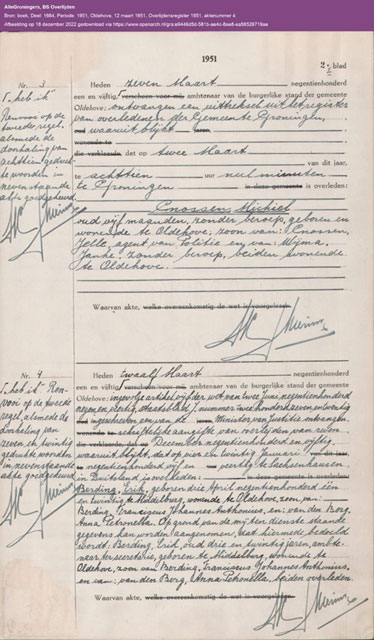 AlleGroningers, BS Overlijden
Bron: boek, Deel: 1984, Periode: 1951, Oldehove, 12 maart 1951, Overlijdensregister 1951, aktenummer 4
Afbeelding op 18 december 2022 gedownload via
1951
2e blad
Nr. 3
Heden zeven Maart negentienhonderd
een en vijftig verscheen voor mij ambtenaar van de burgerlijke stand der gemeente
Oldehove: ontvangen een uittreksel uit het register
van overledenen der Gemeente Groningen,
waaruit blijkt
wonende te
die verklaarde, dat op twee Maart
van dit jaar,
te achttien uur nul minuten
te Groningen in deze gemeente is overleden:
Cnossen, Michiel
oud vijf maanden, zonder beroep, geboren en
wonende te Oldehove, zoon van: Cnossen,
Jelle, agent van Politie en van: Wijma,
Janke, zonder beroep, beiden wonende
te Oldehove.
Waarvan akte, welke overeenkomstig de wet is voorgelezen.
"heb ik"
Renvooi op de
tweede regel,
alsmede de
doorhaling van
achttien gedrukte
woorden in
nevenstaande
akte goedgekeurd.
Nr. 4
Heden twaalf Maart negentienhonderd
een en vijftig verscheen voor mij ambtenaar van de burgerlijke stand der gemeente
Oldehove: ingevolge artikel vijf der wet van twee Juni negentienhonderd
negen en veertig, Staatsblad nummer
ingeschreven een van de Minister van Justitie ontvangen
schriftelijke aangifte van overlijden van
December negentienhonderd en vijftig
waaruit blijkt, dat op vier en twintig Januari van dit jaar,
negentienhonderd vijf en veertig te Sachsenhausen
in Duitsland is overleden:
Berding, Erik, geboren drie April negentienhonderd één
en twintig te Middelburg, wonende te Oldehove, zoon van:
Berding, Franciscus Johannes Anthonius, en: van den Berg,
Anna Petronella. Op grond van de mij ten dienste staande
gegevens kan worden aangenomen, dat hiermede bedoeld
wordt: Berding, Erik, oud drie en twintig jaren, ambte-
naar ter secretarie, geboren te Middelburg, wonende te
Oldehove, zoon van Berding, Franciscus Johannes Anthonius,
en van: van den Berg, Anna Petronella, beiden overleden.
Waarvan akte, welke overeenkomstig de wet is voorgelezen.
"heb ik" Ren-
vooi op de tweede
regel, alsmede de
doorhaling van
zeven en twintig
gedrukte woorden
in nevenstaande
akte goedgekeurd.